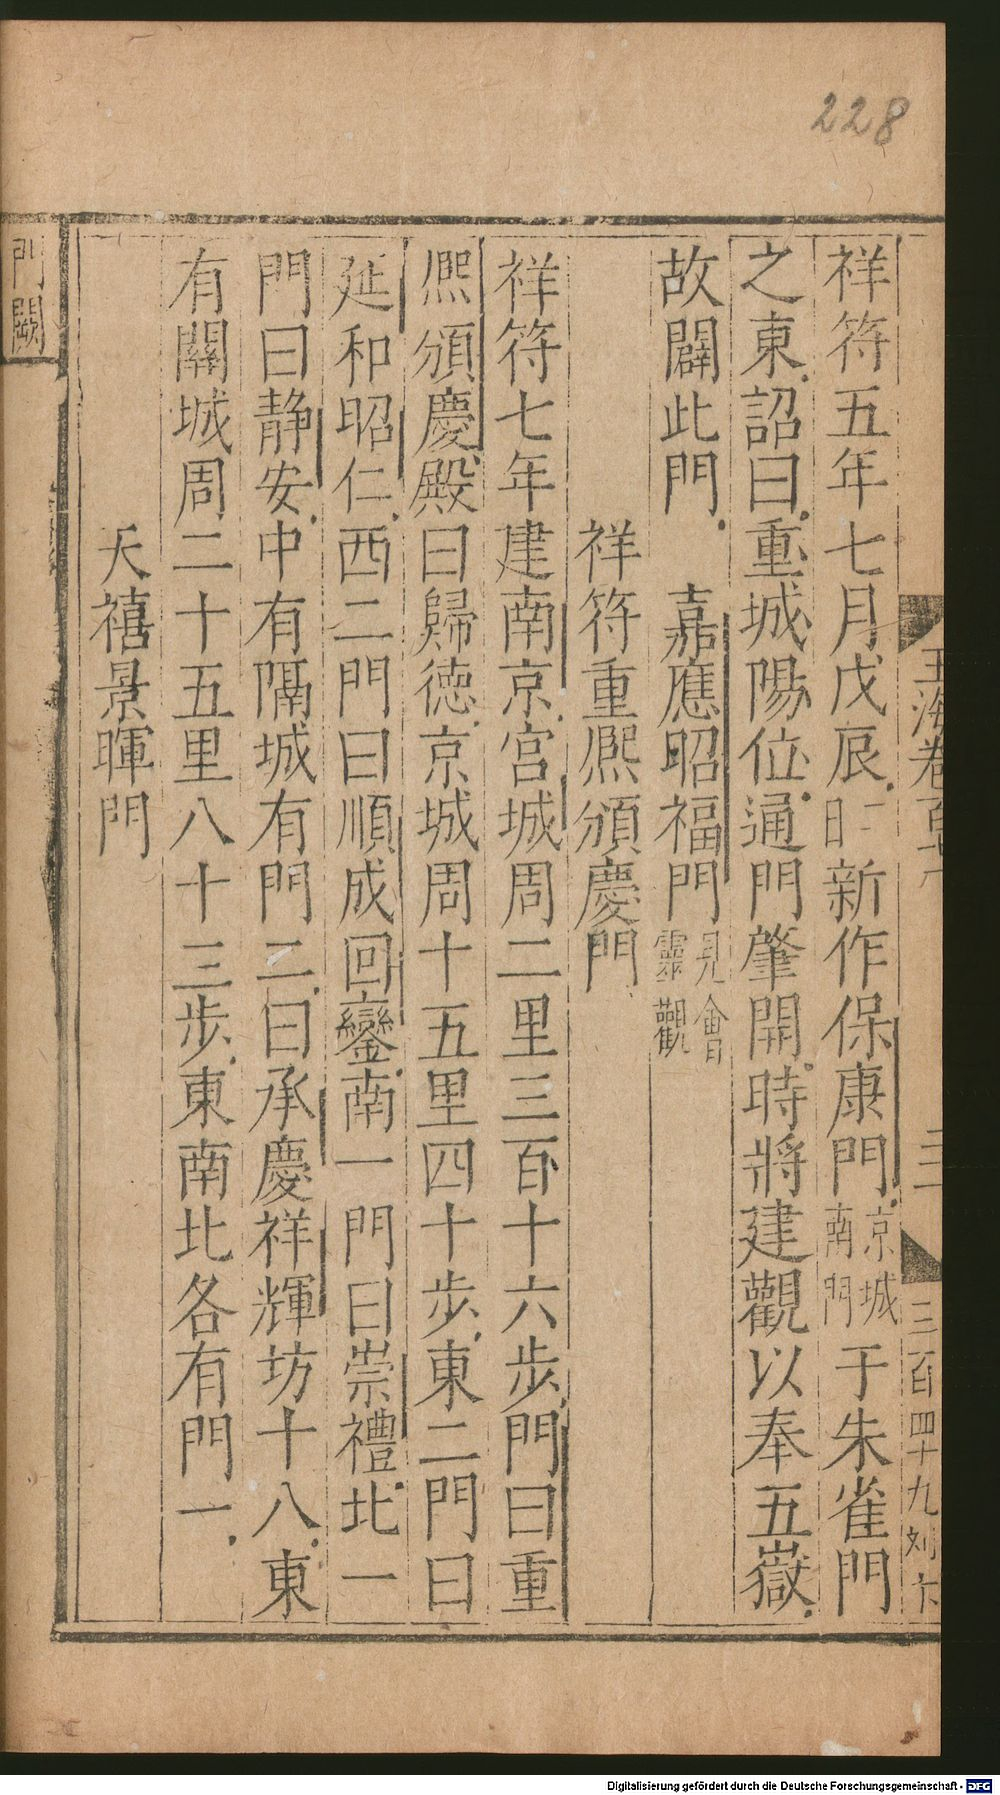 228
玉海卷百七
三百四十九 刘卞
祥符五年七月戊辰一日新作保康門京城南門于朱雀門
之東詔曰重城陽位通門肇開時將建觀以奉五嶽
故闢此門 嘉應昭福門見會靈觀
祥符重熈頒慶門
祥符七年建南京宮城周二里三百十六步門曰重
熈頒慶殿曰歸德京城周十五里四十步東二門曰
延和昭仁西二門曰順成回鑾南一門曰崇禮北一
門曰静安中有隔城有門二曰承慶祥輝坊十八東
有關城周二十五里八十三步東南北各有門一
天禧景暉門
門闕
Digitalisierung gefördert durch die Deutsche Forschungsgemeinschaft - DFG